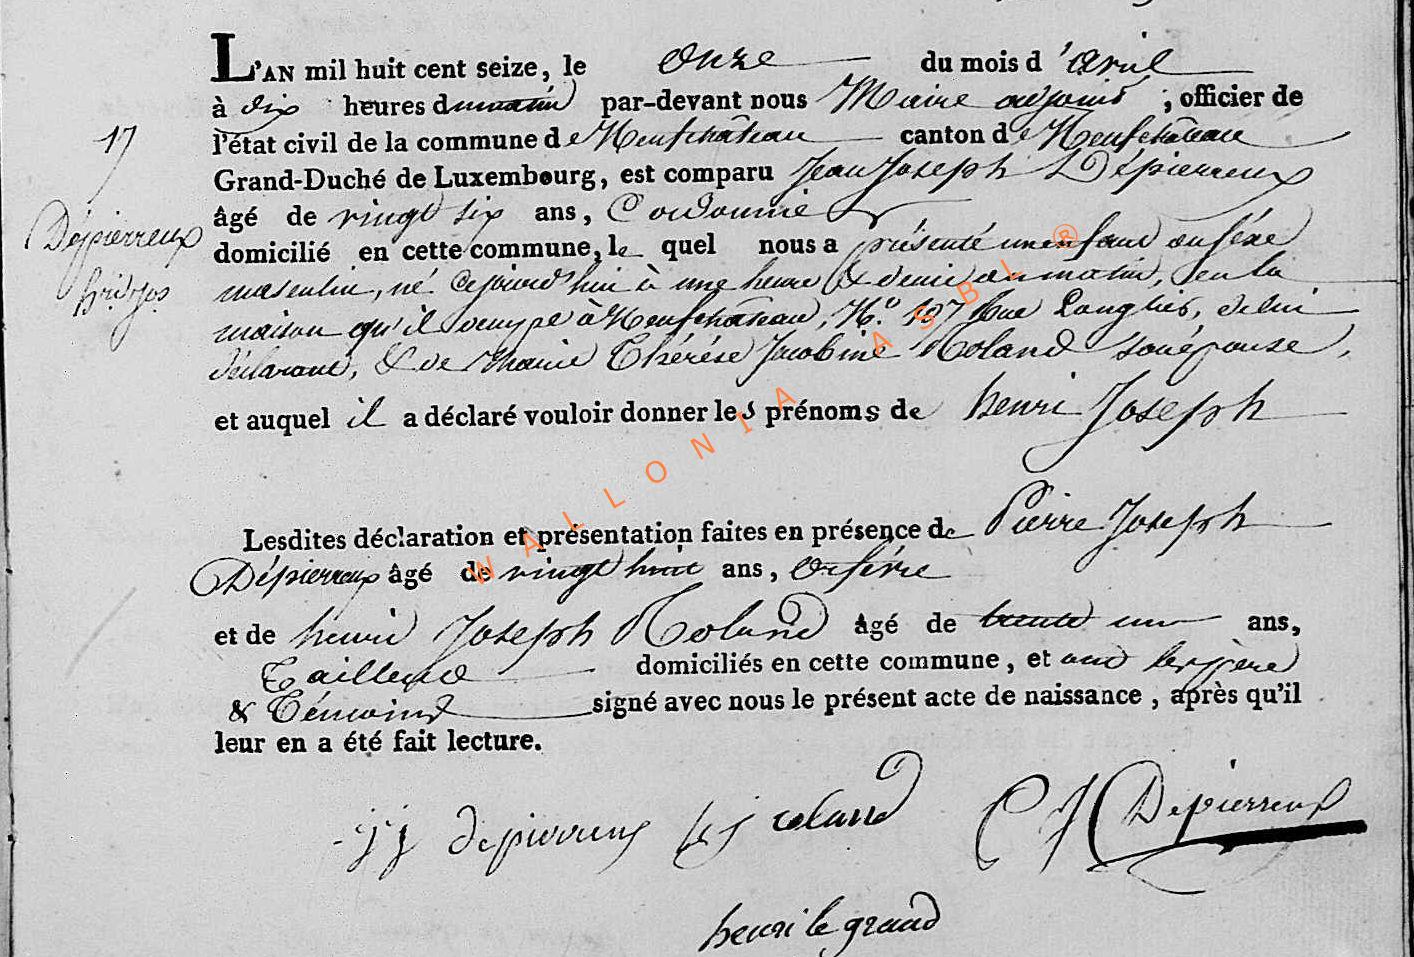 L'AN mil huit cent seize, le onze du mois d'avril
à dix heures du matin par-devant nous Maire adjoint, officier de
17
l'état civil de la commune de Neufchâteau canton de Neufchâteau
Grand-Duché de Luxembourg, est comparu Jean Joseph Dépierreux
âgé de vingt six ans, Cordonnier
Dépierreux
hri. Jos.
domicilié en cette commune, le quel nous a présenté un enfant du séxe
masculin, né cejourd'hui à une heure & demie du matin, en la
maison qu'il occupe à Neufchâteau, N.º 127 Rue, de lui
déclarant, & de Marie Thérése Jacobine Roland son épouse,
et auquel il a déclaré vouloir donner les prénoms de henri Joseph
Lesdites déclaration et présentation faites en présence de Pierre Joseph
Dépierreux âgé de vingt huit ans, orfévre
et de henri Joseph Roland âgé de trente un ans,
Tailleur domiciliés en cette commune, et ont les père
& Témoins signé avec nous le présent acte de naissance, après qu'il
leur en a été fait lecture.
j j depierreux h j roland P J Depierreux
henri le grand
WALLONIA ASBL ®